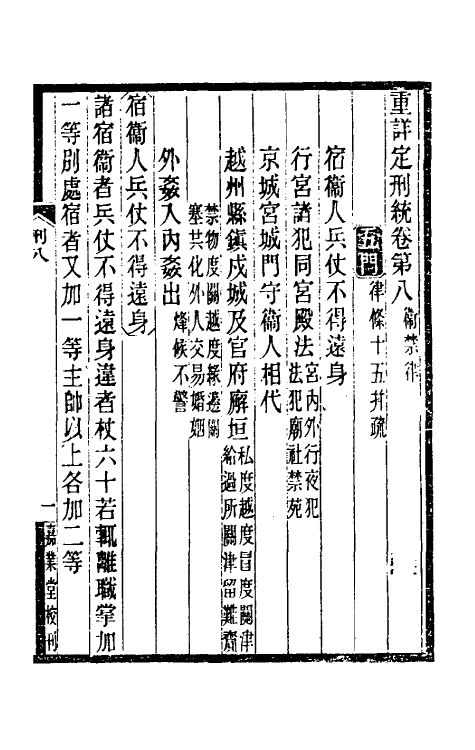 重詳定刑統卷第八 衞禁律
五門 律條十五并疏
宿衞人兵仗不得遠身
行宮諸犯同宮殿法 宮內外行夜犯法 犯廟社禁苑
京城宮城門守衞人相代
越州縣鎮戍城及官府廨垣 私度越度冒度關津 給過所關津留難齎
禁物度關越度緣邊關塞共化外人交易婚姻
外姦入內姦出 烽候不警
宿衞人兵仗不得遠身
諸宿衞者兵仗不得遠身違者杖六十若輒離職掌加
一等別處宿者又加一等主帥以上各加二等
刑八
一
嘉業堂校刊